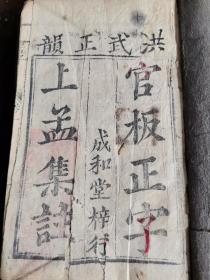 洪武正韻
官板正字
成和堂梓行
上孟集註